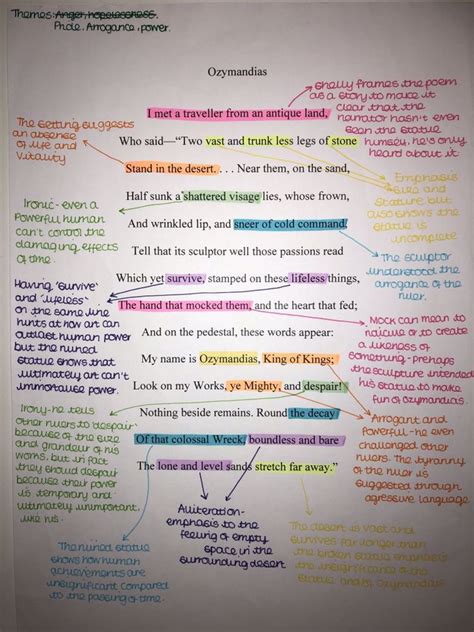 Themes: Anger, hopelessness.
Pride, Arrogance, power.
Ozymandias
I met a traveller from an antique land,
Who said—“Two vast and trunk less legs of stone
Stand in the desert. . . . Near them, on the sand,
Half sunk a shattered visage lies, whose frown,
And wrinkled lip, and sneer of cold command,
Tell that its sculptor well those passions read
Which yet survive, stamped on these lifeless things,
The hand that mocked them, and the heart that fed;
And on the pedestal, these words appear:
My name is Ozymandias, King of Kings;
Look on my Works, ye Mighty, and despair!
Nothing beside remains. Round the decay
Of that colossal Wreck, boundless and bare
The lone and level sands stretch far away.”
The setting suggests
an absence
of life and
vitality
Ironic- even a
Powerful human
can't control the
damaging effects
of time.
Having 'survive'
and 'lifeless'
on the same line
hints at how art can
outlast human power
but the ruined
statue shows that
ultimately art can't
immortalise power.
Irony- he tells
other rulers to 'despair'
because of the size
and grandeur of his
works, but in fact
they should despair
because their power
is temporary and
ultimately unimportant,
like his.
The ruined statue
shows how human
achievements are
insignificant compared
to the passing of time.
Alliteration-
emphasis to the
feeling of empty
space in the
surrounding desert
Shelly frames the poem
as a story to make it
clear that the
narrator hasn't even
seen the statue
himself, he's only
heard about it
Emphasis
size and
stature but
also shows the
statue is
incomplete
The sculptor
understood the
arrogance of the
ruler.
Mock can mean to
ridicule or to create
a likeness of
something - perhaps
the sculpture intended
his statue to make
fun of Ozymandias.
Arrogant and
Powerful- he even
challenged other
rulers. The tyranny
of the ruler is
suggested through
agressive language
The desert is vast and
survives far longer than
the broken statue emphasis
the insignificance of the
statue and Ozymandias